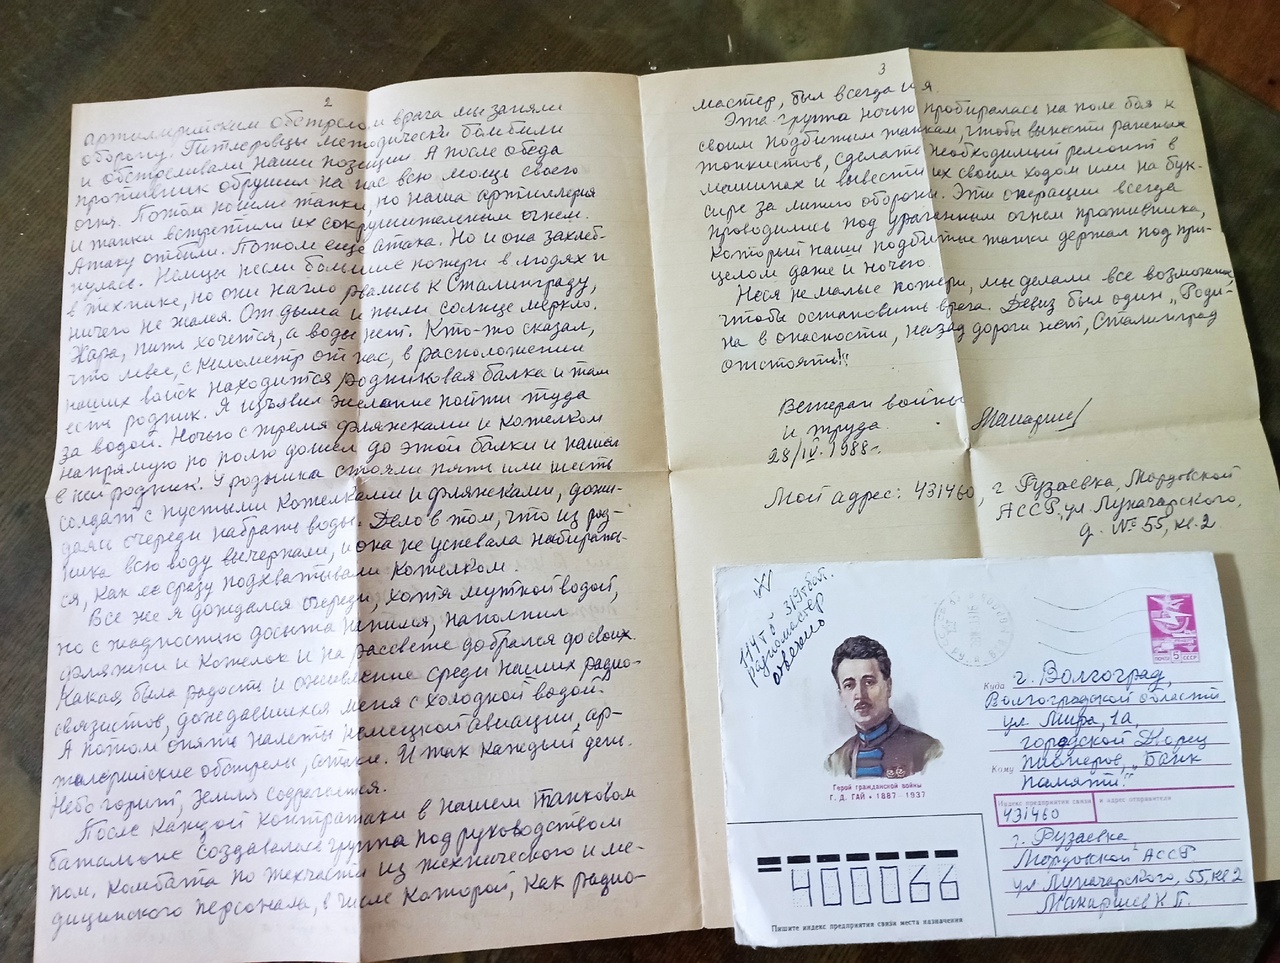 2
артиллерийским обстрелом врага мы заняли
оборону. Гитлеровцы методически бомбили
и обстреливали наши позиции. А после обеда
противник обрушил на нас всю мощь своего
огня. Потом пошли танки, но наша артиллерия
и танки встретили их сокрушительным огнем.
Атаку отбили. Потом ещё атака. Но и она захлеб-
нулась. Немцы несли большие потери в людях и
в технике, но они нагло рвались к Сталинграду,
ничего не жалея. От дыма и пыли солнце меркло.
Жара, пить хочется, а воды нет. Кто-то сказал,
что левее, с километр от нас, в расположении
наших войск находится родниковая балка и там
есть родник. Я изъявил желание пойти туда
за водой. Ночью с тремя фляжками и котелком
напрямую по полю дошел до этой балки и нашел
в ней родник. У родника стояли пять или шесть
солдат с пустыми котелками и фляжками, дожи-
даясь очереди набрать воды. Дело в том, что из род-
ника всю воду вычерпали, и она не успевала набирать-
ся, как ее сразу подхватывали котелком.
Все же я дождался очереди, хотя мутной водой,
но с жадностью досыта напился, наполнил
фляжки и котелок и на рассвете добрался до своих.
Какая была радость и оживление среди наших радио-
связистов, дождавшихся меня с холодной водой.
А потом опять налеты немецкой авиации, ар-
тиллерийские обстрелы, атаки. И так каждый день.
Небо горит, земля содрогается.
После каждой контратаки в нашем танковом
батальоне создавалась группа под руководством
пом. комбата по техчасти из технического и ме-
дицинского персонала, в числе которой, как радио-
3
мастер, был всегда и я.
Эта группа ночью пробиралась на поле боя к
своим подбитым танкам, чтобы вынести раненых
танкистов, сделать необходимый ремонт в
машинах и вывести их своим ходом или на бук-
сире за линию обороны. Эти операции всегда
проводились под ураганным огнем противника,
который наши подбитые танки держал под при-
целом даже и ночью.
Неся не малые потери, мы делали все возможное,
чтобы остановить врага. Девиз был один „Роди-
на в опасности, назад дороги нет, Сталинград
отстоять!"
Ветеран войны
и труда.
28/IV-1988г.
Мой адрес: 431460, г Рузаевка, Мордовской
АССР, ул Луначарского,
д. № 55, кв. 2
319 тбат.
радиомастер
Герой гражданской войны
Г. Д. ГАЙ • 1887 - 1937
ПОЧТА 5 СССР
Куда г. Волгоград,
Волгоградской области
ул. Мира, 1а,
городской Дворец
Кому пионеров, „Банк
памяти."
Индекс предприятия связи и адрес отправителя
431460
г. Рузаевка
Мордовской АССР
ул Луначарского, 55, кв 2
Макаршев К. П.
400066
Пишите индекс предприятия связи места назначения